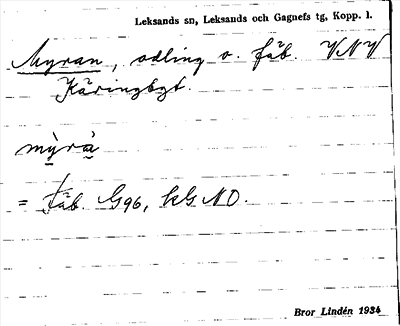 Leksands sn, Leksands och Gagnefs tg, Kopp. l.
Myran, odling o. fäb. VNV
Käringbgt.
mỳrà̤
= Fäb G96, kG NO.
Bror Lindén 1934